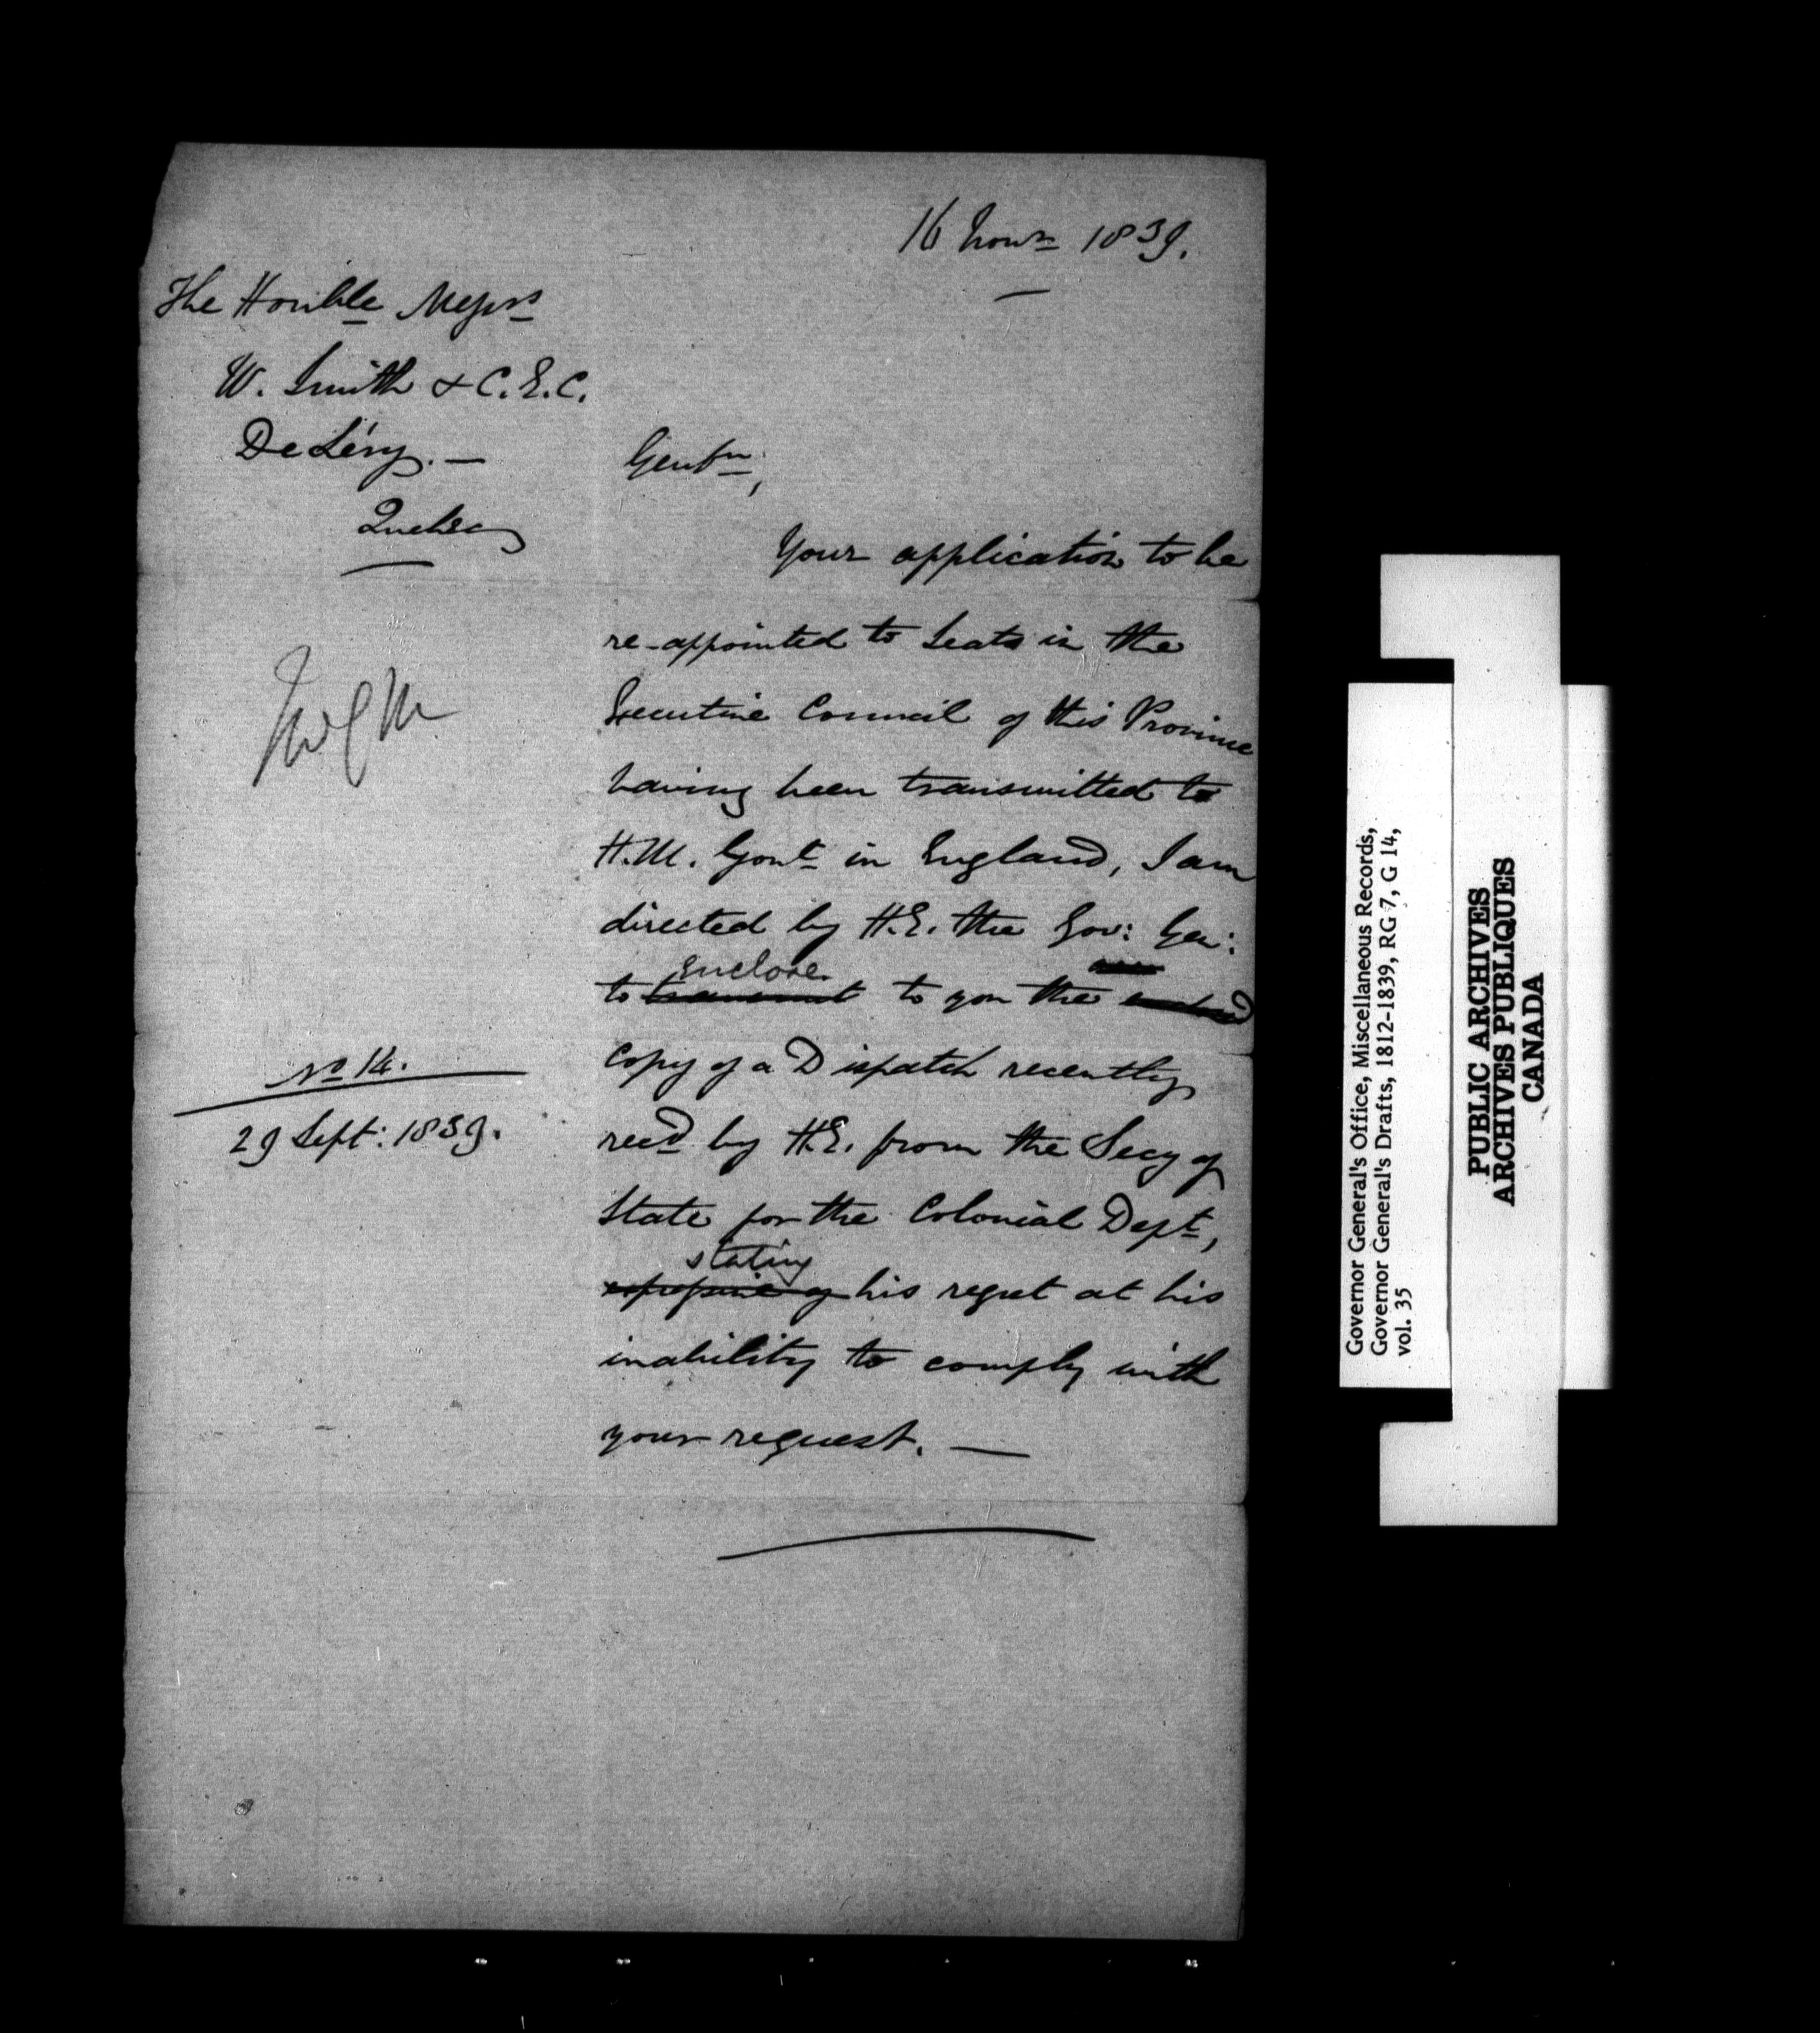 16 Novr 1839.
The Honble Messrs
W. Smith & C. E. C.
De Léry. —
Quebec
Gentn,
Your application to be
re-appointed to Seats in the
Executive Council of this Province
having been transmitted to
H.M. Govt in England, I am
directed by H.E. the Gov: Gen:
Enclose
to transmit to you the enclosed
No 14.
29 Sept: 1839.
Copy of a Dispatch recently
recd by H.E. from the Secy of
State for the Colonial Dept,
stating
expressive of his regret at his
inability to comply with
your request. —
Governor General's Office, Miscellaneous Records,
Governor General's Drafts, 1812-1839, RG 7, G 14,
vol. 35
PUBLIC ARCHIVES
ARCHIVES PUBLIQUES
CANADA